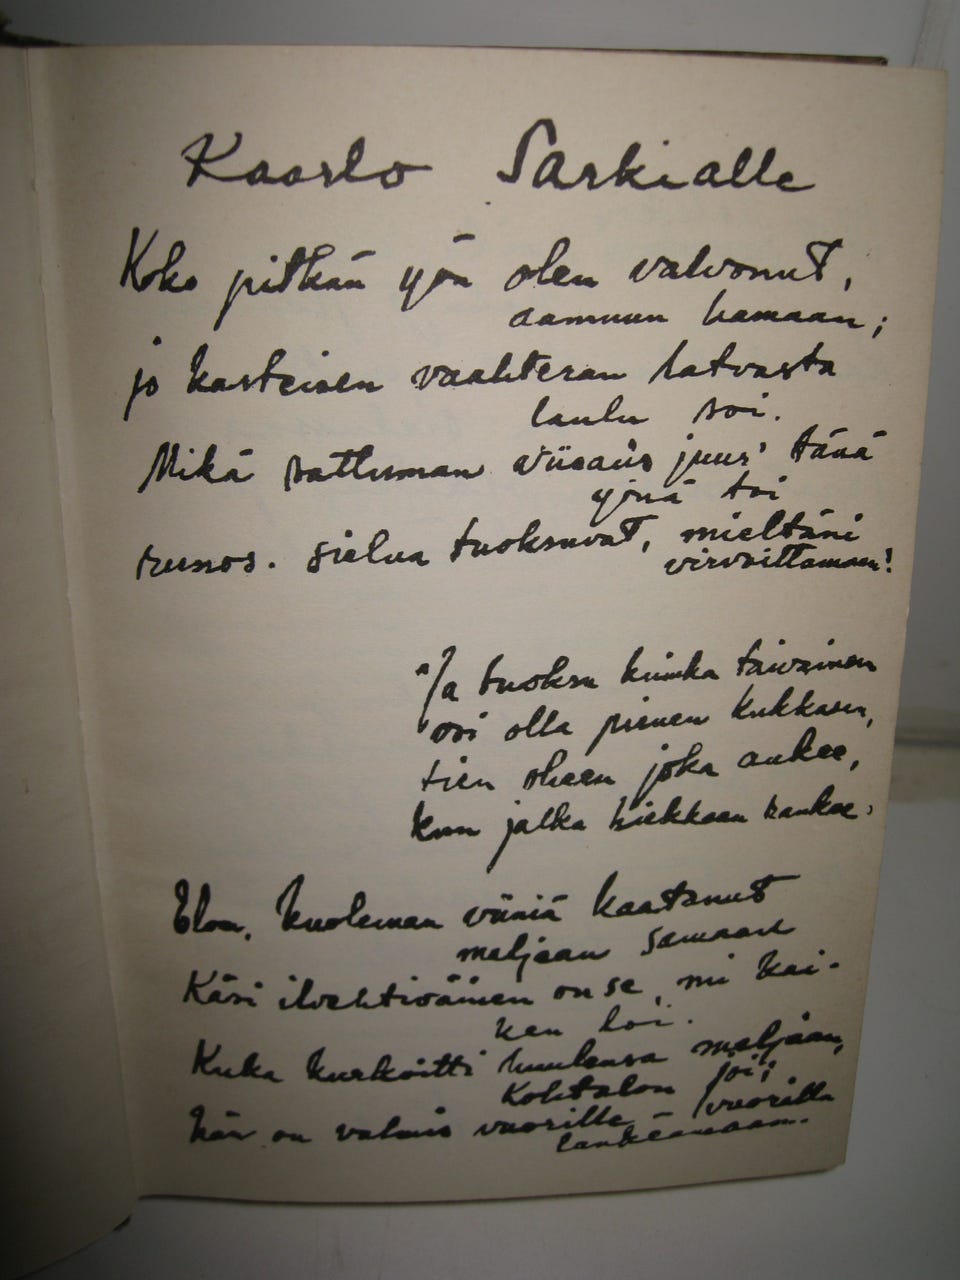 Kaarlo Sarkialle
Koko pitkän yön olen valvonut,
aamuun hamaan;
jo kasteisen vaahteran latvasta
laulu soi.
Mikä sattuman viisaus juur' tänä
yönä toi
runos. sielua tuoksuvat, mieltäni
virvoittamaan!
"Ja tuoksu kuinka taivainen
voi olla pienen kukkasen,
tien oheen joka aukee,
kun jalka hiekkaan raukee.
Elon, kuoleman viiniä kaatanut
maljaan samaan
Käsi ilvehtiväinen on se, mi kai-
ken loi.
Kuka kurkoitti huulensa maljaan,
Kohtalon joi;
hän on valmis vuorille – vuorilla
lankeamaan.